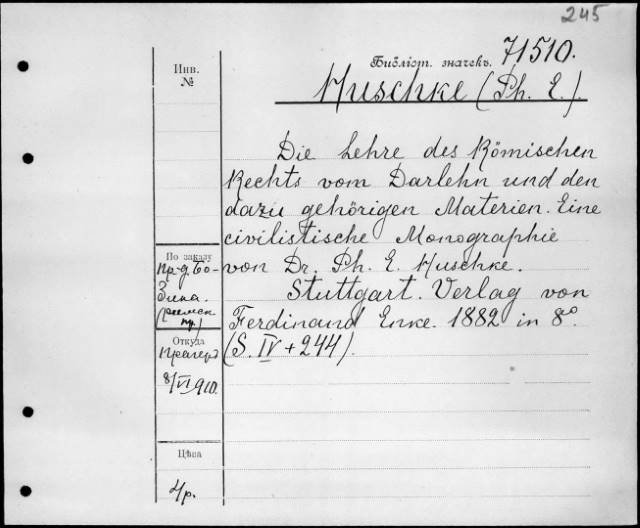 245
Библіот. значекъ. 71510.
Huschke (Ph. E.)
Инв.
№
Die Lehre des Römischen
Rechts vom Darlehn und den
dazu gehörigen Materien. Eine
civilistische Monographie
von Dr. Ph. E. Huschke.
Stuttgart. Verlag von
Ferdinand Enke. 1882 in 8º.
(S. IV + 244).
По заказу
пр-д. Бо-
(римск
пр.)
Откуда
Прагеръ
8/VI 910.
Цѣна
4 р.